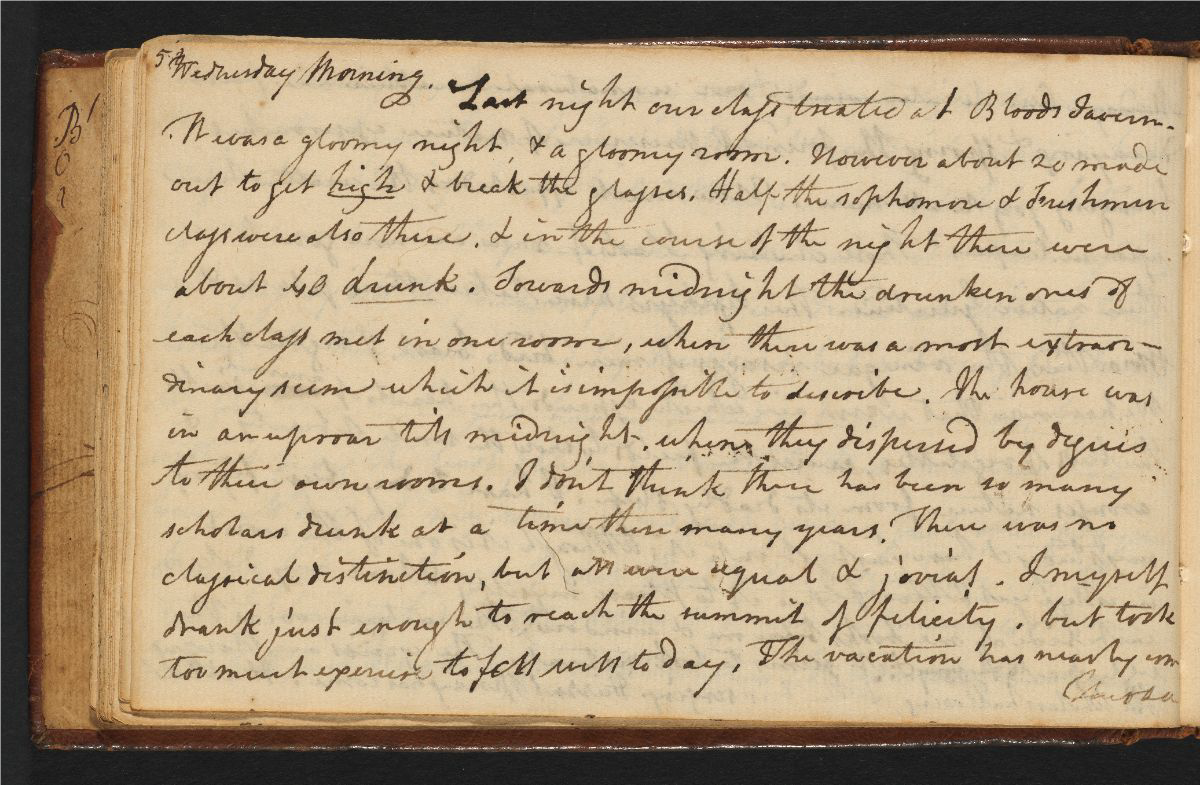 52
Wednesday Morning.
Last night our class treated at Bloods Tavern.
It was a gloomy night, & a gloomy room. However about 20 made
out to get high & break the glasses. Half the sophomore & Freshmen
class were also there. & in the course of the night there were
about 40 drunk. Towards midnight the drunken ones of
each class met in one room, where there was a most extraor-
dinary scene which it is impossible to describe. The house was
in an uproar till midnight. when they dispersed by degrees
to their own rooms. I don't think there has been so many
scholars drunk at a time these many years. There was no
classical distinction, but all were equal & jovial. I myself
drank just enough to reach the summit of felicity. but took
too much to fell well to day. The vacation has nearly com
B
O